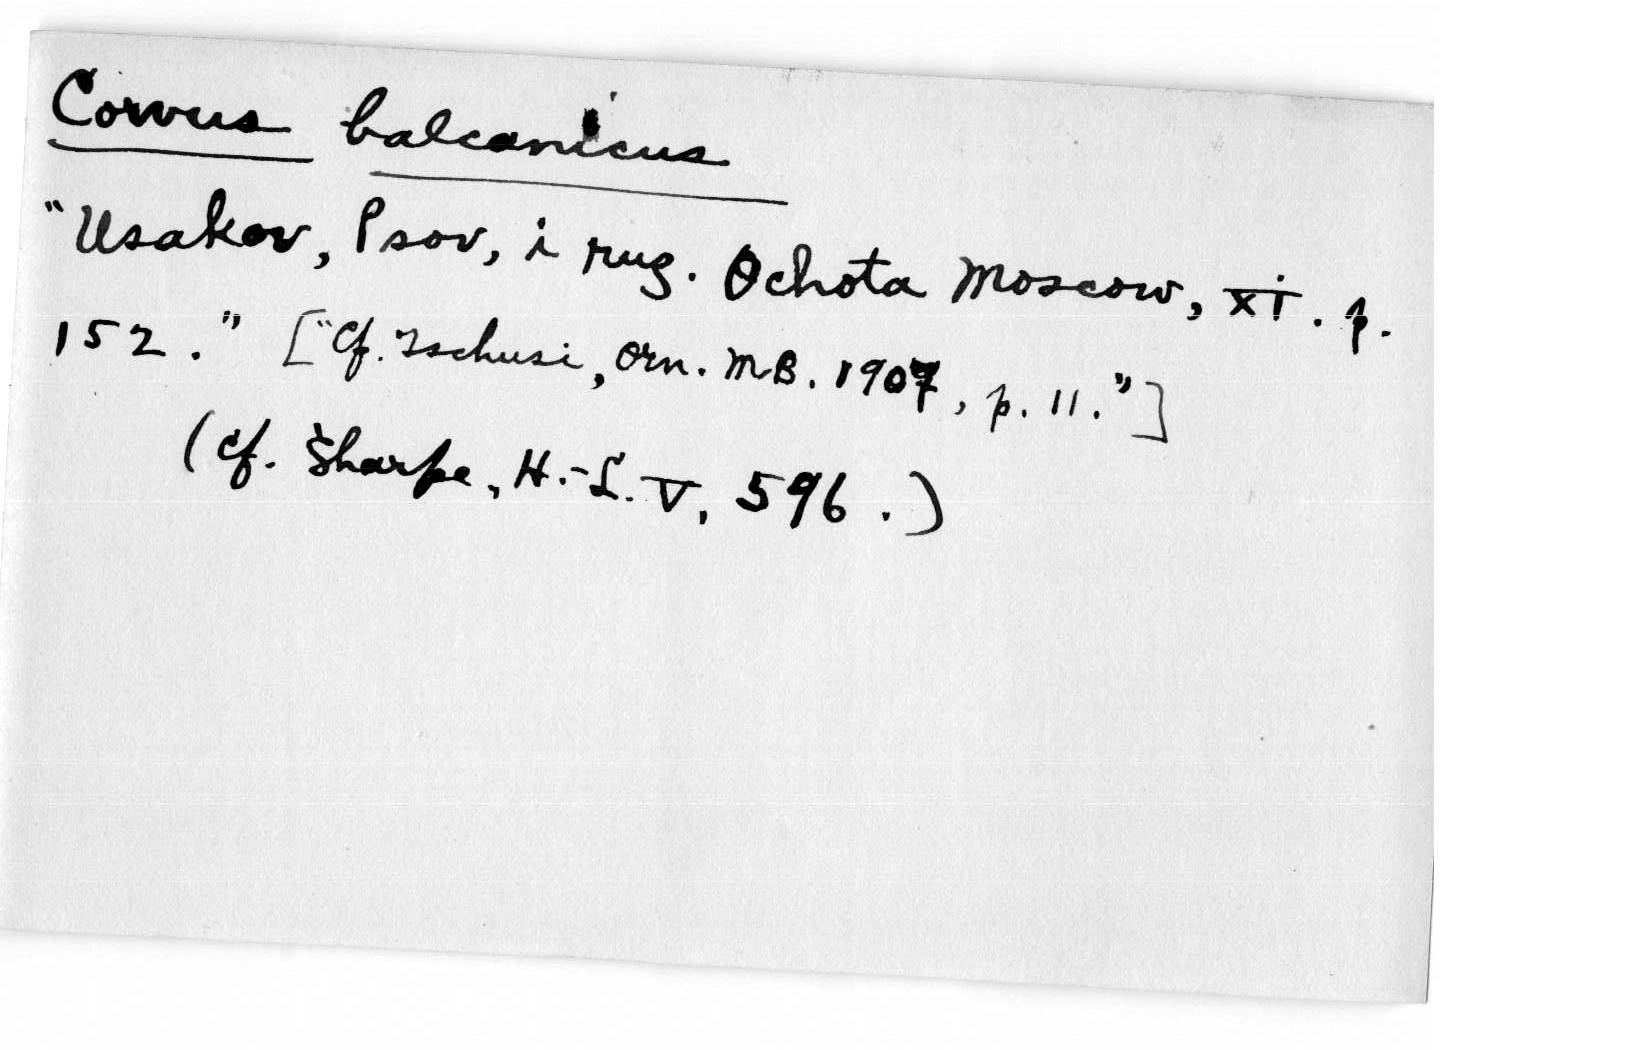 Corvus balcanicus
"Usakov, Psov, i ruz. Ochota Moscow, XI. p.
152." ["Cf. Tschusi, Orn. MB. 1907, p. 11."]
(cf. Sharpe, H.-L. V, 596.)